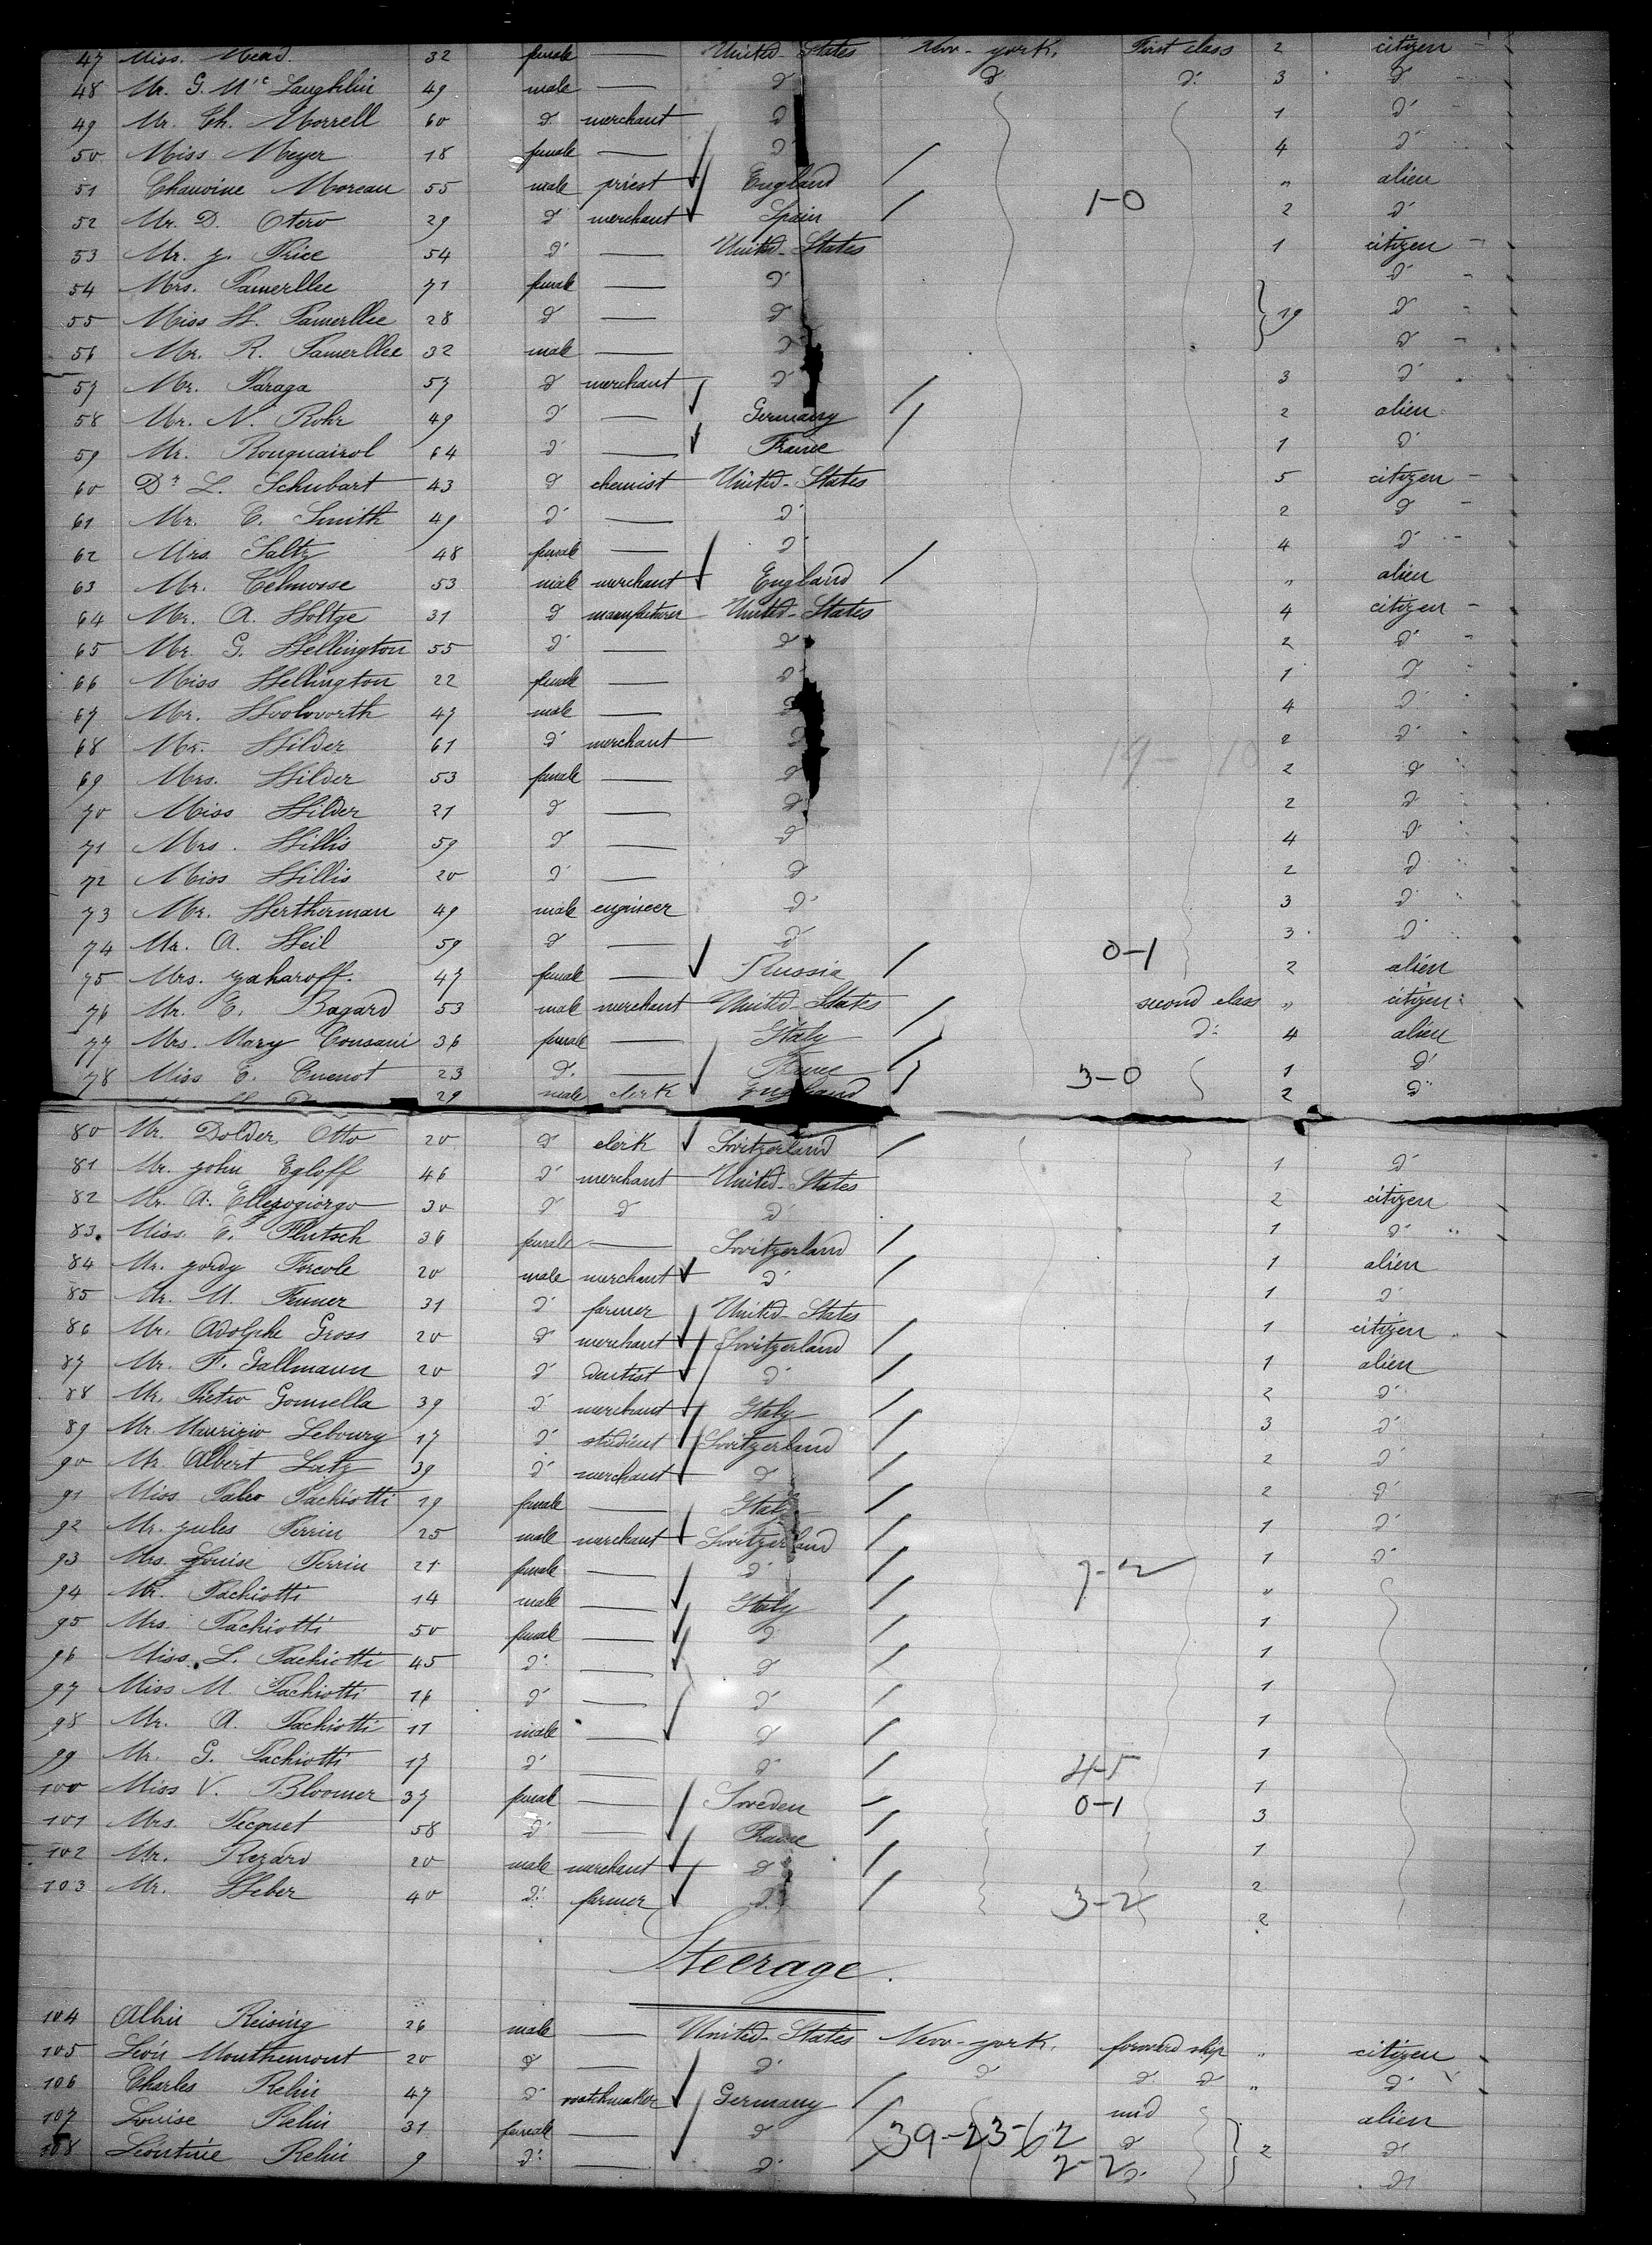 47 Miss. Mead. 32 female — United-States New-york. First class 2 citizen
48 Mr. G. Mc Laughlin 49 male — d° d° d° 3 d°
49 Mr. Ch. Morrell 60 d° merchant d° 1 d°
50 Miss Meyer 18 female — d° 4 d°
51 Chanoine Moreau 55 male priest England " alien
52 Mr. D. Otero 29 d° merchant Spain 1-0 2 d°
53 Mr. J. Price 54 d° — United-States 1 citizen
54 Mrs. Pamerllee 71 female — d° d°
55 Miss H. Pamerllee 28 d° — d° 19 d°
56 Mr. R. Pamerllee 32 male — d° d°
57 Mr. Paraga 57 d° merchant d° 3 d°
58 Mr. N. Rohr 49 d° — Germany 2 alien
59 Mr. Rouquairol 64 d° — France 1 d°
60 Dr L. Schubart 43 d° chemist United-States 5 citizen
61 Mr. C. Smith 49 d° — d° 2 d°
62 Mrs. Saltz 48 female — d° 4 d°
63 Mr. Telmosse 53 male merchant England " alien
64 Mr. A. Woltze 31 d° manufacturer United-States 4 citizen
65 Mr. G. Wellington 55 d° — d° 2 d°
66 Miss Wellington 22 female — d° 1 d°
67 Mr. Woolworth 47 male — d° 4 d°
68 Mr. Wilder 61 d° merchant d° 2 d°
69 Mrs. Wilder 53 female — d° 2 d°
70 Miss Wilder 21 d° — d° 2 d°
71 Mrs. Willis 59 d° — d° 4 d°
72 Miss Willis 20 d° — d° 2 d°
73 Mr. Wertherman 49 male engineer d° 3 d°
74 Mr. A. Weil 59 d° — d° 3 d°
75 Mrs. Zaharoff. 47 female — Russia 0-1 2 alien
76 Mr. E. Bagard 53 male merchant United-States second class " citizen
77 Mrs. Mary Consani 36 female — Italy d° 4 alien
78 Miss E. Cuenot 23 d° — France 3-0 1 d°
29 male clerk England 2 d°
80 Mr. Dolder, Otto 20 d° clerk Switzerland
81 Mr. John Egloff 46 d° merchant United-States 1 d°
82 Mr. A. Ellezogiorgo 30 d° d° d° 2 citizen
83. Miss. E. Flutsch 36 female — Switzerland 1 d°
84 Mr. Jordy Forcole 20 male merchant d° 1 alien
85 Mr. M. Fenner 31 d° farmer United-States 1 d°
86 Mr. Adolphe Gross 20 d° merchant Switzerland 1 citizen
87 Mr. F. Gallmann 20 d° dentist d° 1 alien
88 Mr. Pietro Gonnella 39 d° merchant Italy 2 d°
89 Mr. Maurizio Lebourg 17 d° student Switzerland 3 d°
90 Mr. Albert Lutz 39 d° merchant d° 2 d°
91 Miss Pachiotti 19 female — Italy 2 d°
92 Mr. Jules Perrin 25 male merchant Switzerland 1 d°
93 Mrs. Louise Perrin 21 female — d° 7-2 1 d°
94 Mr. Pachiotti 14 male — Italy "
95 Mrs. Pachiotti 50 female — d° 1
96 Miss. L. Pachiotti 45 d° — d° 1
97 Miss M. Pachiotti 16 d° — d° 1
98 Mr. A. Pachiotti 11 male — d° 1
99 Mr. G. Pachiotti 17 d° — d° 4-5 1
100 Miss V. Bloomer 37 female — Sweden 0-1 1
101 Mrs. Pecquet 58 d° — France 3
102 Mr. Rezard 20 male merchant d° 1
103 Mr. Weber 40 d° farmer d° 3-2 2
2
Steerage.
104 Albin Reising 26 male — United-States New-york. forward ship " citizen
105 Léon Monthemont 20 d° — d° d° d° d° " d°
106 Charles Relin 47 d° watchmaker Germany mid alien
107 Louise Relin 31 female — d° 39-23-62 d° 2 d°
108 Léontine Relin 9 d° — d° 2-2 d° d°